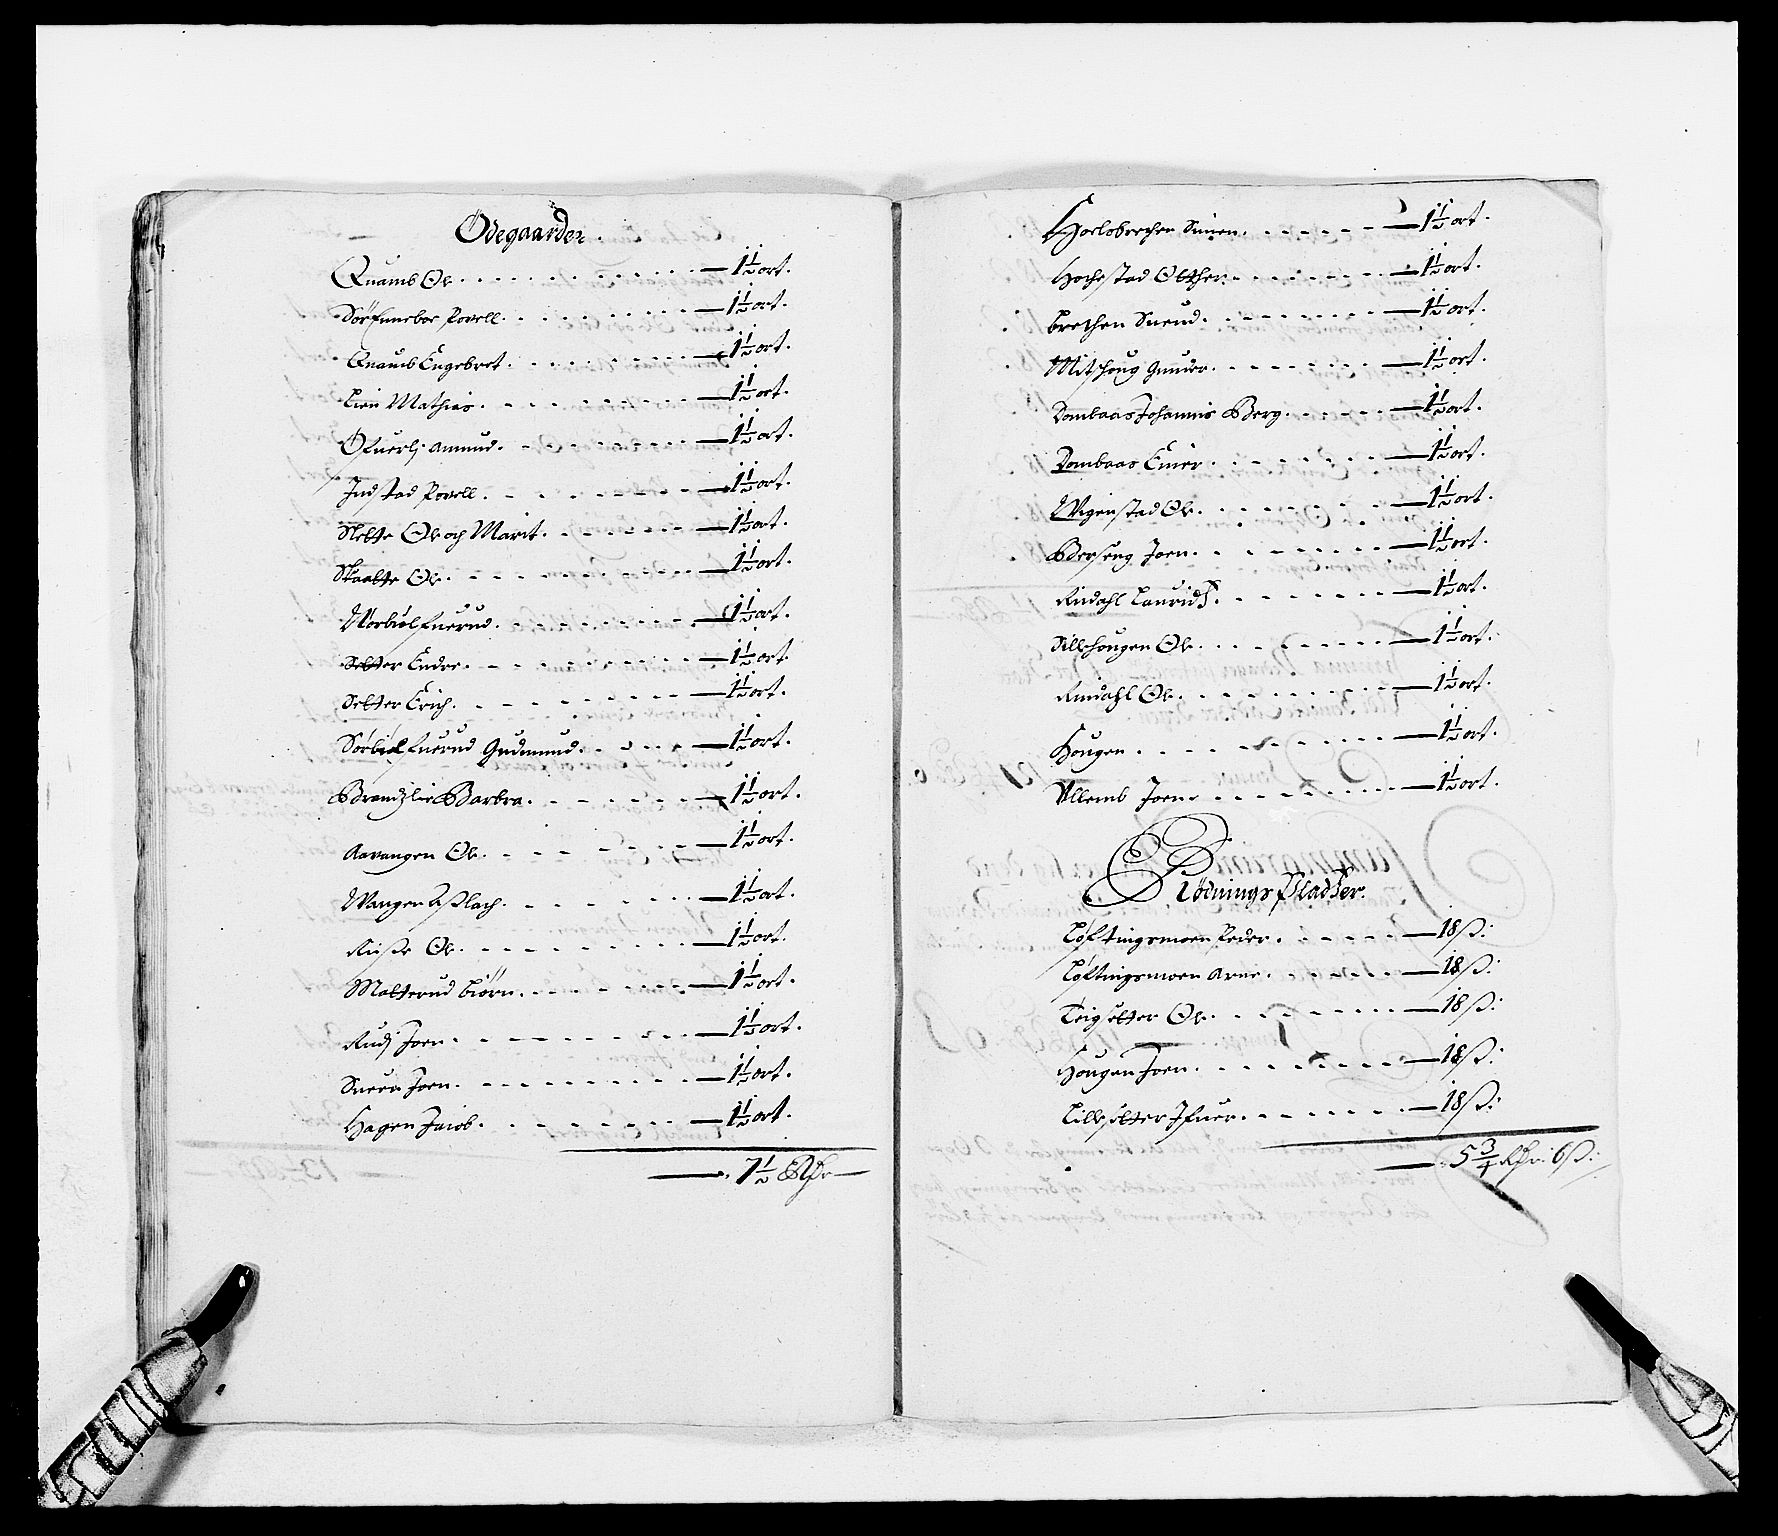 Ödegaarder.
Quamb Ole. 1½ ort.
Sörfinneboe Povell. 1½ ort.
Quamb Engebret. 1½ ort.
Lien Mathias. 1½ ort.
Öfuerlj Amund. 1½ ort.
Indstad Povell. 1½ ort.
Slette Ole och Marit. 1½ ort.
Skaatte Ole. 1½ ort.
Norbiöl Siuerud. 1½ ort.
Setter Endre. 1½ ort.
Setter Erich. 1½ ort.
Sörbiöl Gudmund. 1½ ort.
Brendzlie Barbra. 1½ ort.
Aavangen Ole. 1½ ort.
Wangen Aslach. 1½ ort.
Ruste Ole. 1½ ort.
Motterud Biörn. 1½ ort.
Rudj Joen. 1½ ort.
Suera Joen. 1½ ort.
Hagen Jacob. 1½ ort.
7½ Rdr
Horlobrechen Simen. 1½ ort.
Hochestad Olther. 1½ ort.
Brechen Suend. 1½ ort.
Mitshoug Gunder. 1½ ort.
Dombaas Johannis Berg. 1½ ort.
Dombaas Einer. 1½ ort.
Wigenstad Ole. 1½ ort.
Berseng Joen. 1½ ort.
Rindahl Lauridz. 1½ ort.
Sillehougen Ole. 1½ ort.
Rindahl Ole. 1½ ort.
Hougen. 1½ ort.
Ullemb Joen. 1½ ort.
Rödnings Pladser.
Löftingsmoen Peder. 18 ß:
Löftingsmoen Arne. 18 ß:
Teigsetter Ole. 18 ß:
Hougen Joen. 18 ß:
Lillesetter Ifuer. 18 ß:
5¾ Rdr: 6 ß: